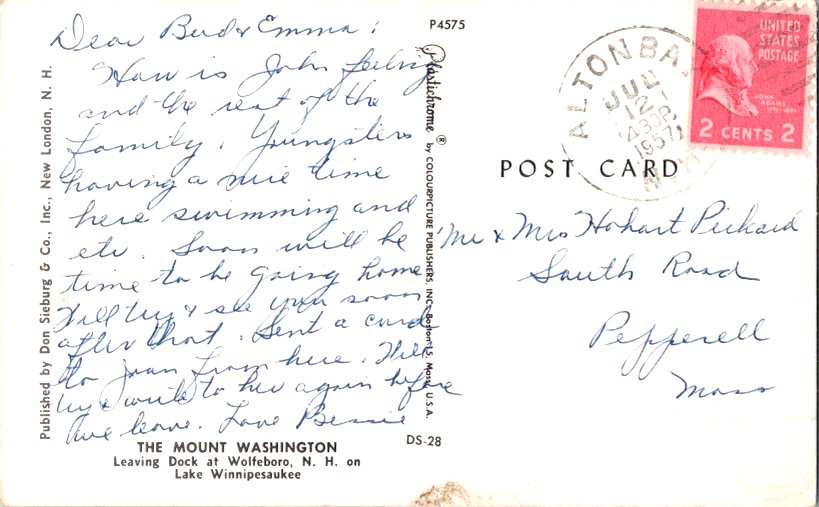 Dear Bud & Emma:
How is John feeling
and the rest of the
family. Youngsters
having a nice time
here swimming and
etc. Soon will be
time to be going home
Will try & see you soon
after that. Sent a card
to Joan from here. Will
try & write to her again before
we leave. Love Bessie
THE MOUNT WASHINGTON
Leaving Dock at Wolfeboro, N. H. on
Lake Winnipesaukee
DS-28
Published by Don Sieburg & Co., Inc., New London, N. H.
P4575
Plastichrome ® by COLOURPICTURE PUBLISHERS, INC., Boston 15, Mass., U.S.A.
ALTON BAY
JUL
12
430P
1957
N.H.
UNITED
STATES
POSTAGE
JOHN
ADAMS
2 CENTS 2
POST CARD
Mr & Mrs Hobart Pickard
South Road
Pepperell
Mass